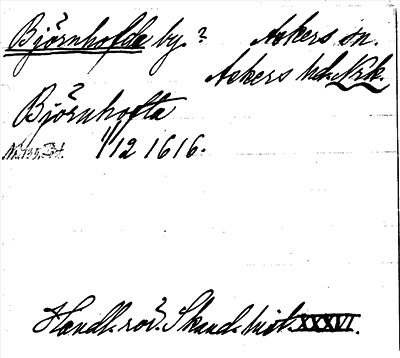 Björnhofde by.? Ackers sn.
Ackers hd. Nrk.
Björnhofta
1/12 1616.
Handl. rör. Skand. hist. XXXVI.